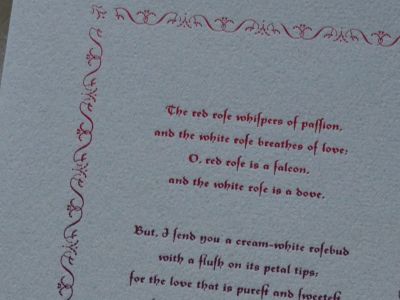 The red roſe whiſpers of paſſion,
and the white roſe breathes of love;
O, red roſe is a falcon,
and the white roſe is a dove.
But, I ſend you a cream-white roſebud
with a fluſh on its petal tips;
for the love that is pureſt and ſweeteſt